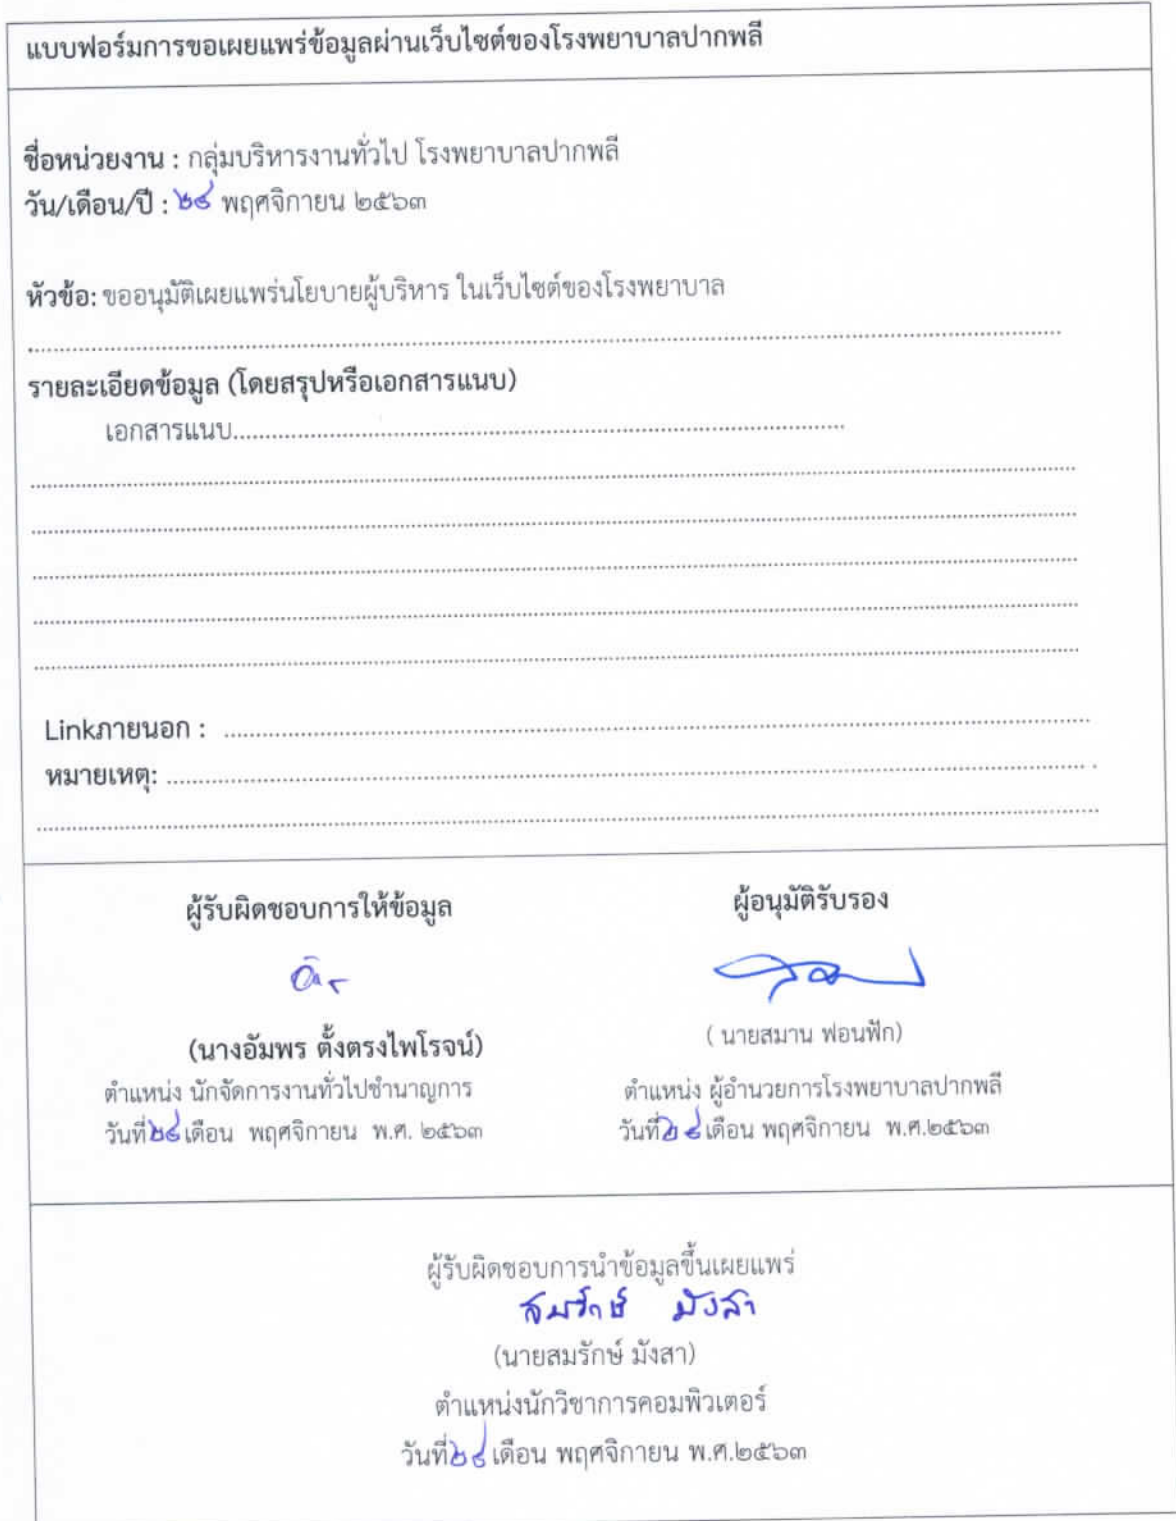 แบบฟอร์มการขอเผยแพร่ข้อมูลผ่านเว็บไซต์ของโรงพยาบาลปากพลี
ชื่อหน่วยงาน : กลุ่มบริหารงานทั่วไป โรงพยาบาลปากพลี
วัน/เดือน/ปี : ๒๘ พฤศจิกายน ๒๕๖๓
หัวข้อ: ขออนุมัติเผยแพร่นโยบายผู้บริหาร ในเว็บไซต์ของโรงพยาบาล
รายละเอียดข้อมูล (โดยสรุปหรือเอกสารแนบ)
เอกสารแนบ
Linkภายนอก :
หมายเหตุ:
ผู้รับผิดชอบการให้ข้อมูล ผู้อนุมัติรับรอง
(นางอัมพร ตั้งตรงไพโรจน์) ( นายสมาน ฟอนฟัก)
ตำแหน่ง นักจัดการงานทั่วไปชำนาญการ ตำแหน่ง ผู้อำนวยการโรงพยาบาลปากพลี
วันที่ ๒๘ เดือน พฤศจิกายน พ.ศ. ๒๕๖๓ วันที่ ๒๘ เดือน พฤศจิกายน พ.ศ.๒๕๖๓
ผู้รับผิดชอบการนำข้อมูลขึ้นเผยแพร่
สมรักษ์ มังสา
(นายสมรักษ์ มังสา)
ตำแหน่งนักวิชาการคอมพิวเตอร์
วันที่ ๒๘ เดือน พฤศจิกายน พ.ศ.๒๕๖๓